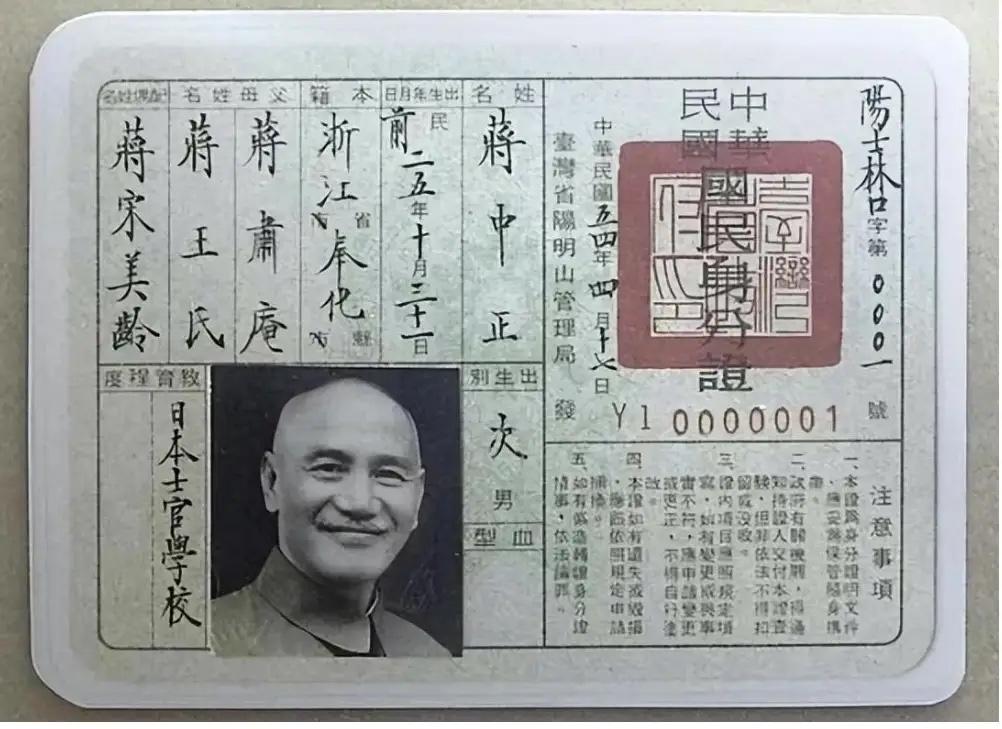 陽士林口字第000一號
中華
民國
國民身分證
Y10000001
中華民國五四年四月十七日
臺灣省陽明山管理局發
注意事項
一、本證為身分證明文件
,應妥為保管隨身攜
帶。
二、政府有關機關,得通
知持證人交付本證查
驗,但非依法不得扣
留或沒收。
三、證內項目應照規定填
寫,如有變更或與事
實不符,應申請變更
或更正,不得自行塗
改。
四、本證如有遺失或毀損
,應即依照規定申請
五、如有偽造
身分證
情事,依法論罪。
姓名
蔣中正
出生年月日
民前二五年十月三十一日
本籍
浙江省市奉化縣市
父母姓名
蔣肅庵
蔣王氏
配偶姓名
蔣宋美齡
出生別
次男
血型
教育程度
日本士官學校